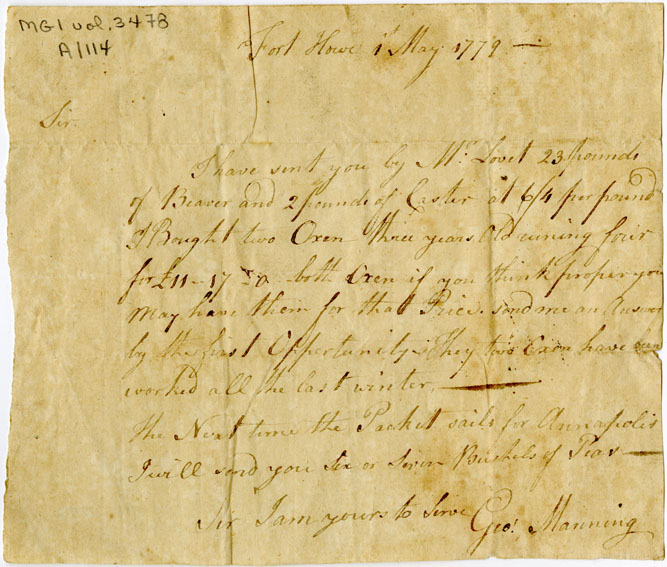 MG1 vol. 3478
A/114
Fort Howe 1st May 1779 —
Sir.
I have sent you by Mr. Lovet 23 pounds
of Beaver and 2 pounds of Caster at 6/4 per pound
I Bought two Oxen three years Old runing four
for £11 - 17 - 0 both Oxen if you think proper you
May have them for that Price. send me an Answer
by the first Oppertunity. They two Oxen have been
worked all the last winter. —
the Next time the Packet sails for Annapolis
I will send you Six or Seven Bushels of Peas —
Sir I am yours to Serve
Geo: Manning